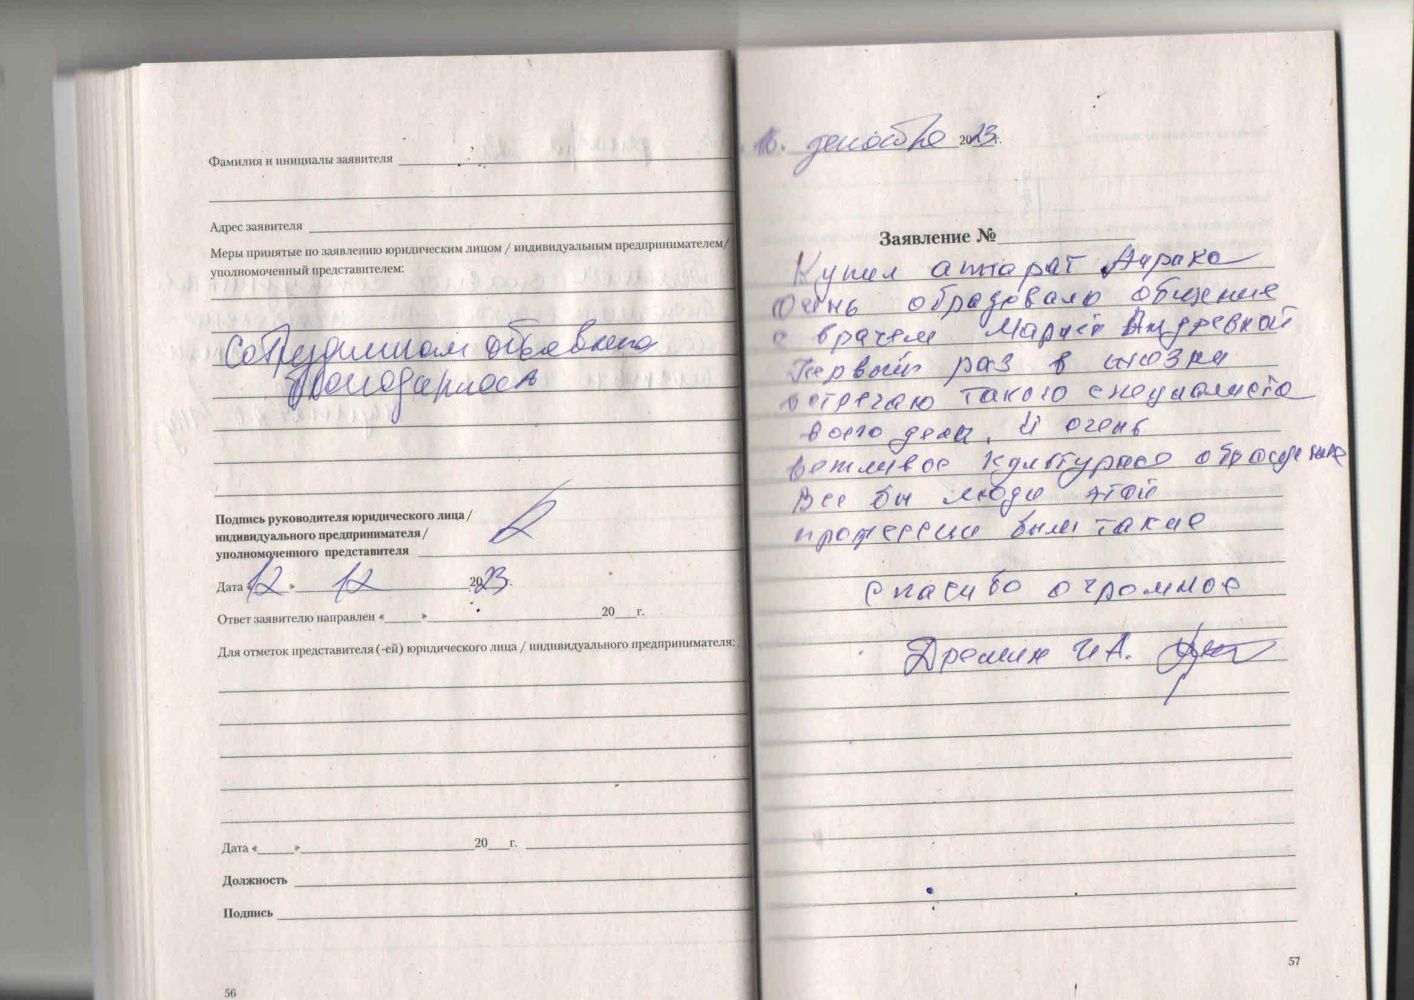 Фамилия и инициалы заявителя
Адрес заявителя
Меры принятые по заявлению юридическим лицом / индивидуальным предпринимателем/
уполномоченный представителем:
Сотрудникам объявлена
благодарность
Подпись руководителя юридического лица /
индивидуального предпринимателя /
уполномоченного представителя
Дата «12» 12 2023г.
Ответ заявителю направлен «» 20 г.
Для отметок представителя (-ей) юридического лица / индивидуального предпринимателя:
Дата «» 20 г.
Должность
Подпись
56
декабря 2023г.
Заявление №
Купил аппарат
Очень обрадовало общение
с врачем Марией Андревной
Первый раз в жизни
встречаю такого специалиста
своего дела. И очень
вежливое культурное обращение
Все бы люди этой
профессии были такие
спасибо огромное
Дремин И.А.
57